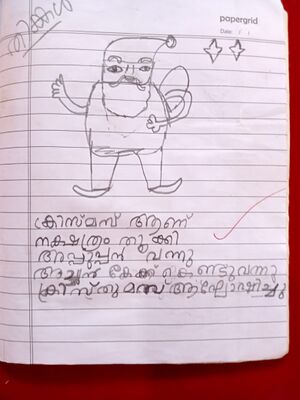 തിങ്കൾ
papergrid
Date: / /
ക്രിസ്മസ് ആണ്
നക്ഷത്രം തൂക്കി
അപ്പുപ്പൻ വന്നു
കേക്ക് കൊണ്ടുവന്നു
ക്രിസ്തുമസ് ആഘോഷിച്ചു